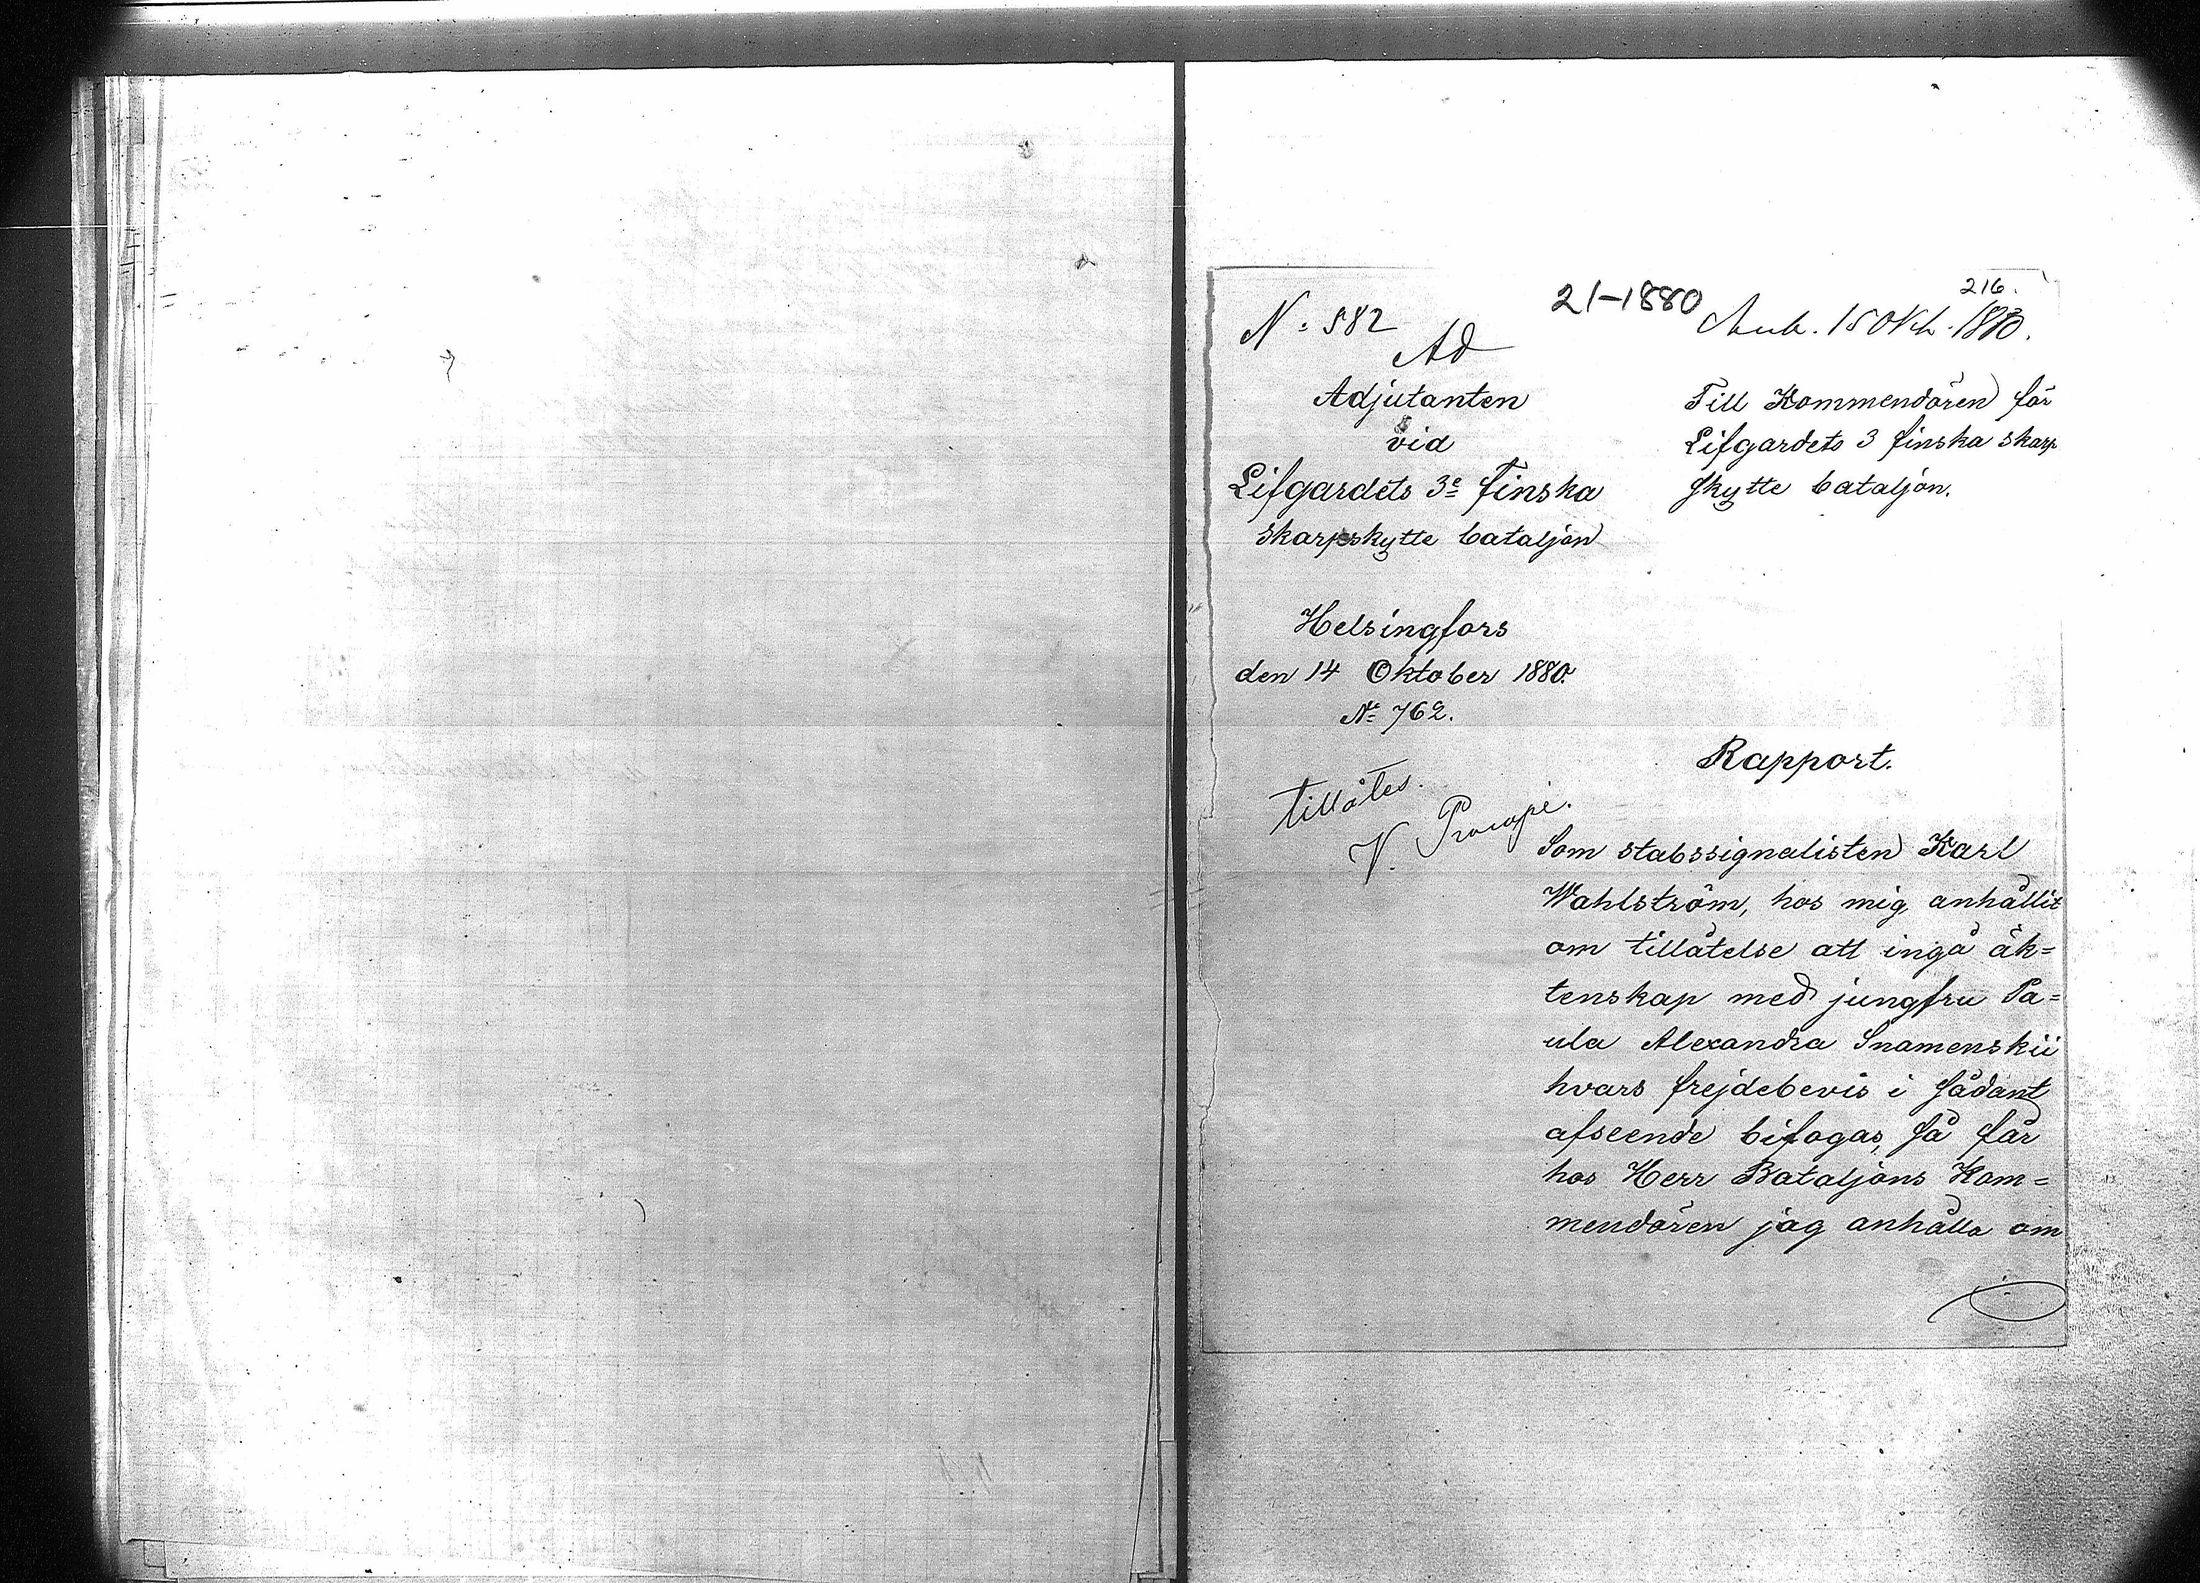 216.
21-1880
N: 582
Ank. 15 Okt. 1880.
Ad
Adjutanten
vid
Lifgardets 3e Finska
Skarpskytte bataljon
Till Kommendören för
Lifgardets 3 finska skarp
skytte bataljon.
Helsingfors
den 14 Oktober 1880.
No 762.
Rapport.
tillåtes.
V. Procopé.
Som stabssignalisten Karl
Wahlström, hos mig anhållit
om tillåtelse att ingå äk=
tenskap med jungfru Pa=
ula Alexandra Snamenskii
hvars frejdebevis i sådant
afseende bifogas, så får
hos Herr Bataljons Kom=
mendören jag anhålla om